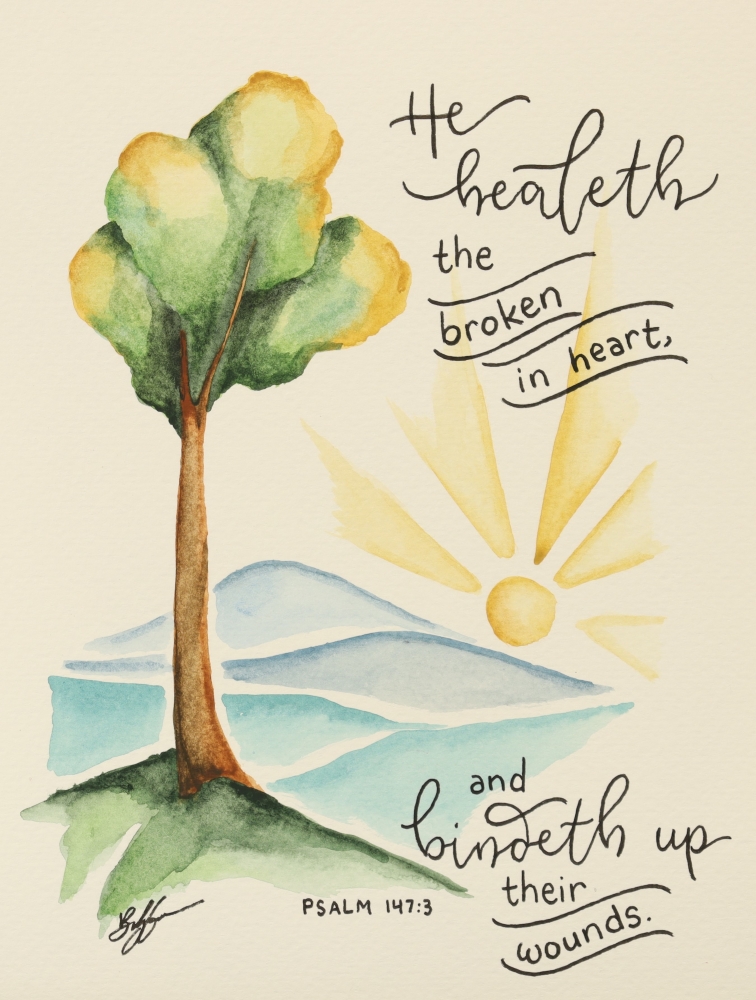 He
healeth
the
broken
in heart,
and
bindeth up
their
wounds.
PSALM 147:3